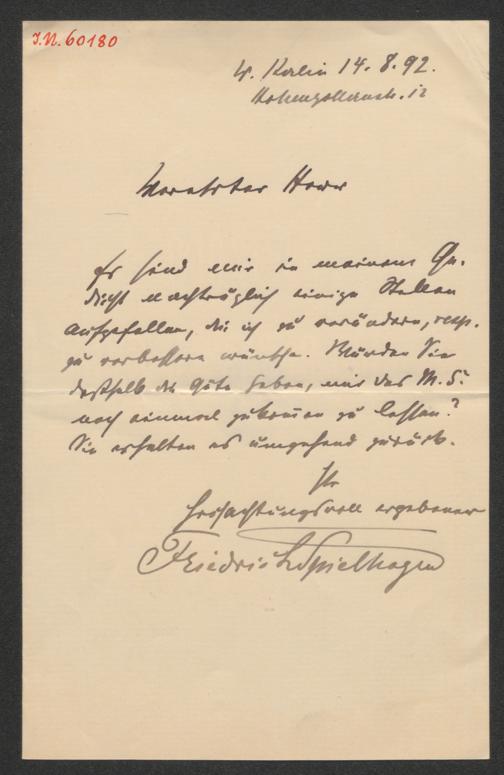 J.N. 60180
W. Berlin 14. 8. 92.
Hohenzollernstr. 12
Verehrter Herr
Es sind mir in meinem Ge-
dicht nachträglich einige Stellen
aufgefallen, die ich zu verändern, resp.
zu verbessern wünsche. Würden Sie
deshalb die Güte haben, mir das M. S.
noch einmal zukommen zu lassen?
Sie erhalten es umgehend zurück.
Ihr
hochachtungsvoll ergebener
Friedrich Spielhagen